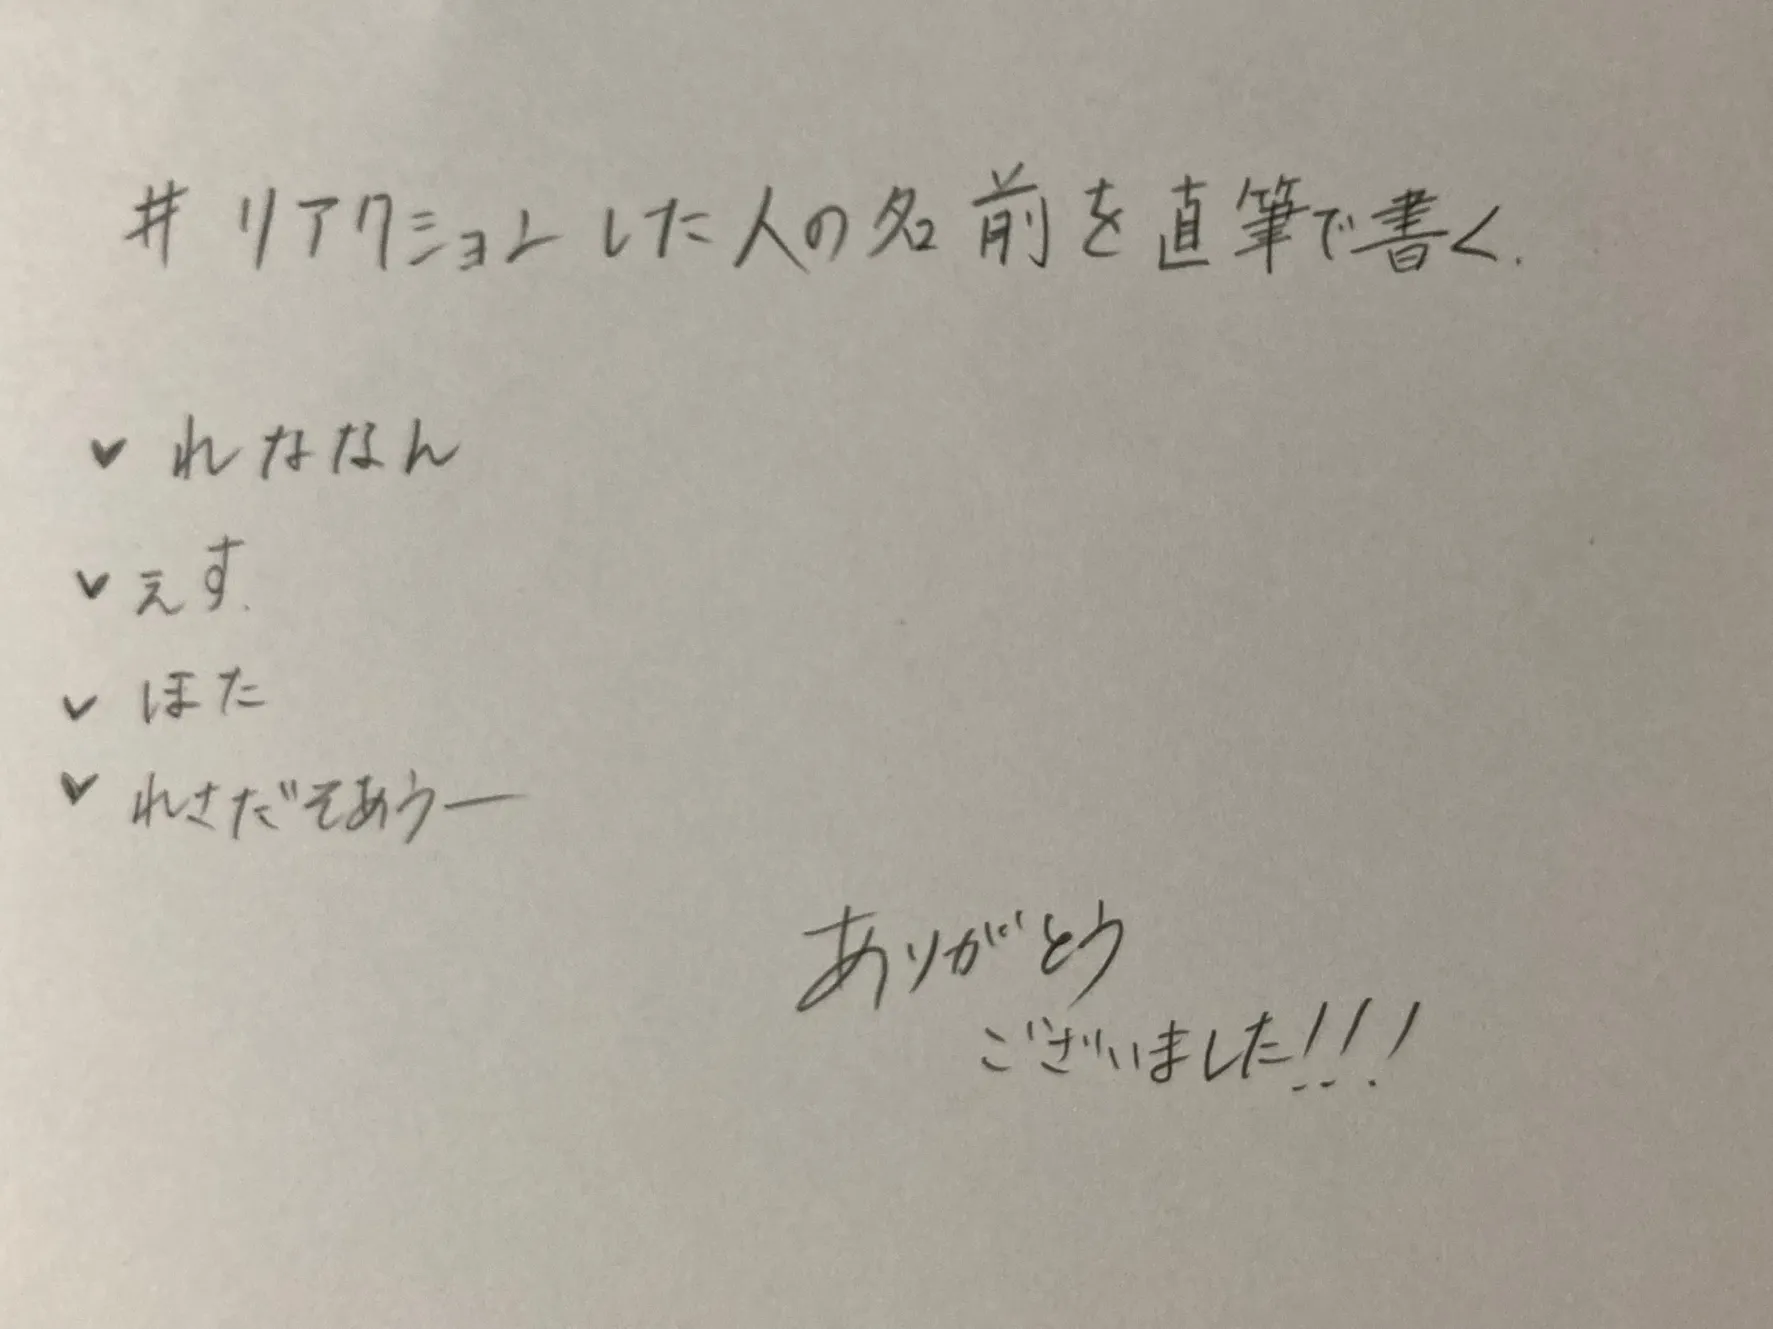 #リアクションした人の名前を直筆で書く.
✓ れななん
✓ えす.
✓ ほた
✓ れさだそあうー
ありがとう
ございました!!!